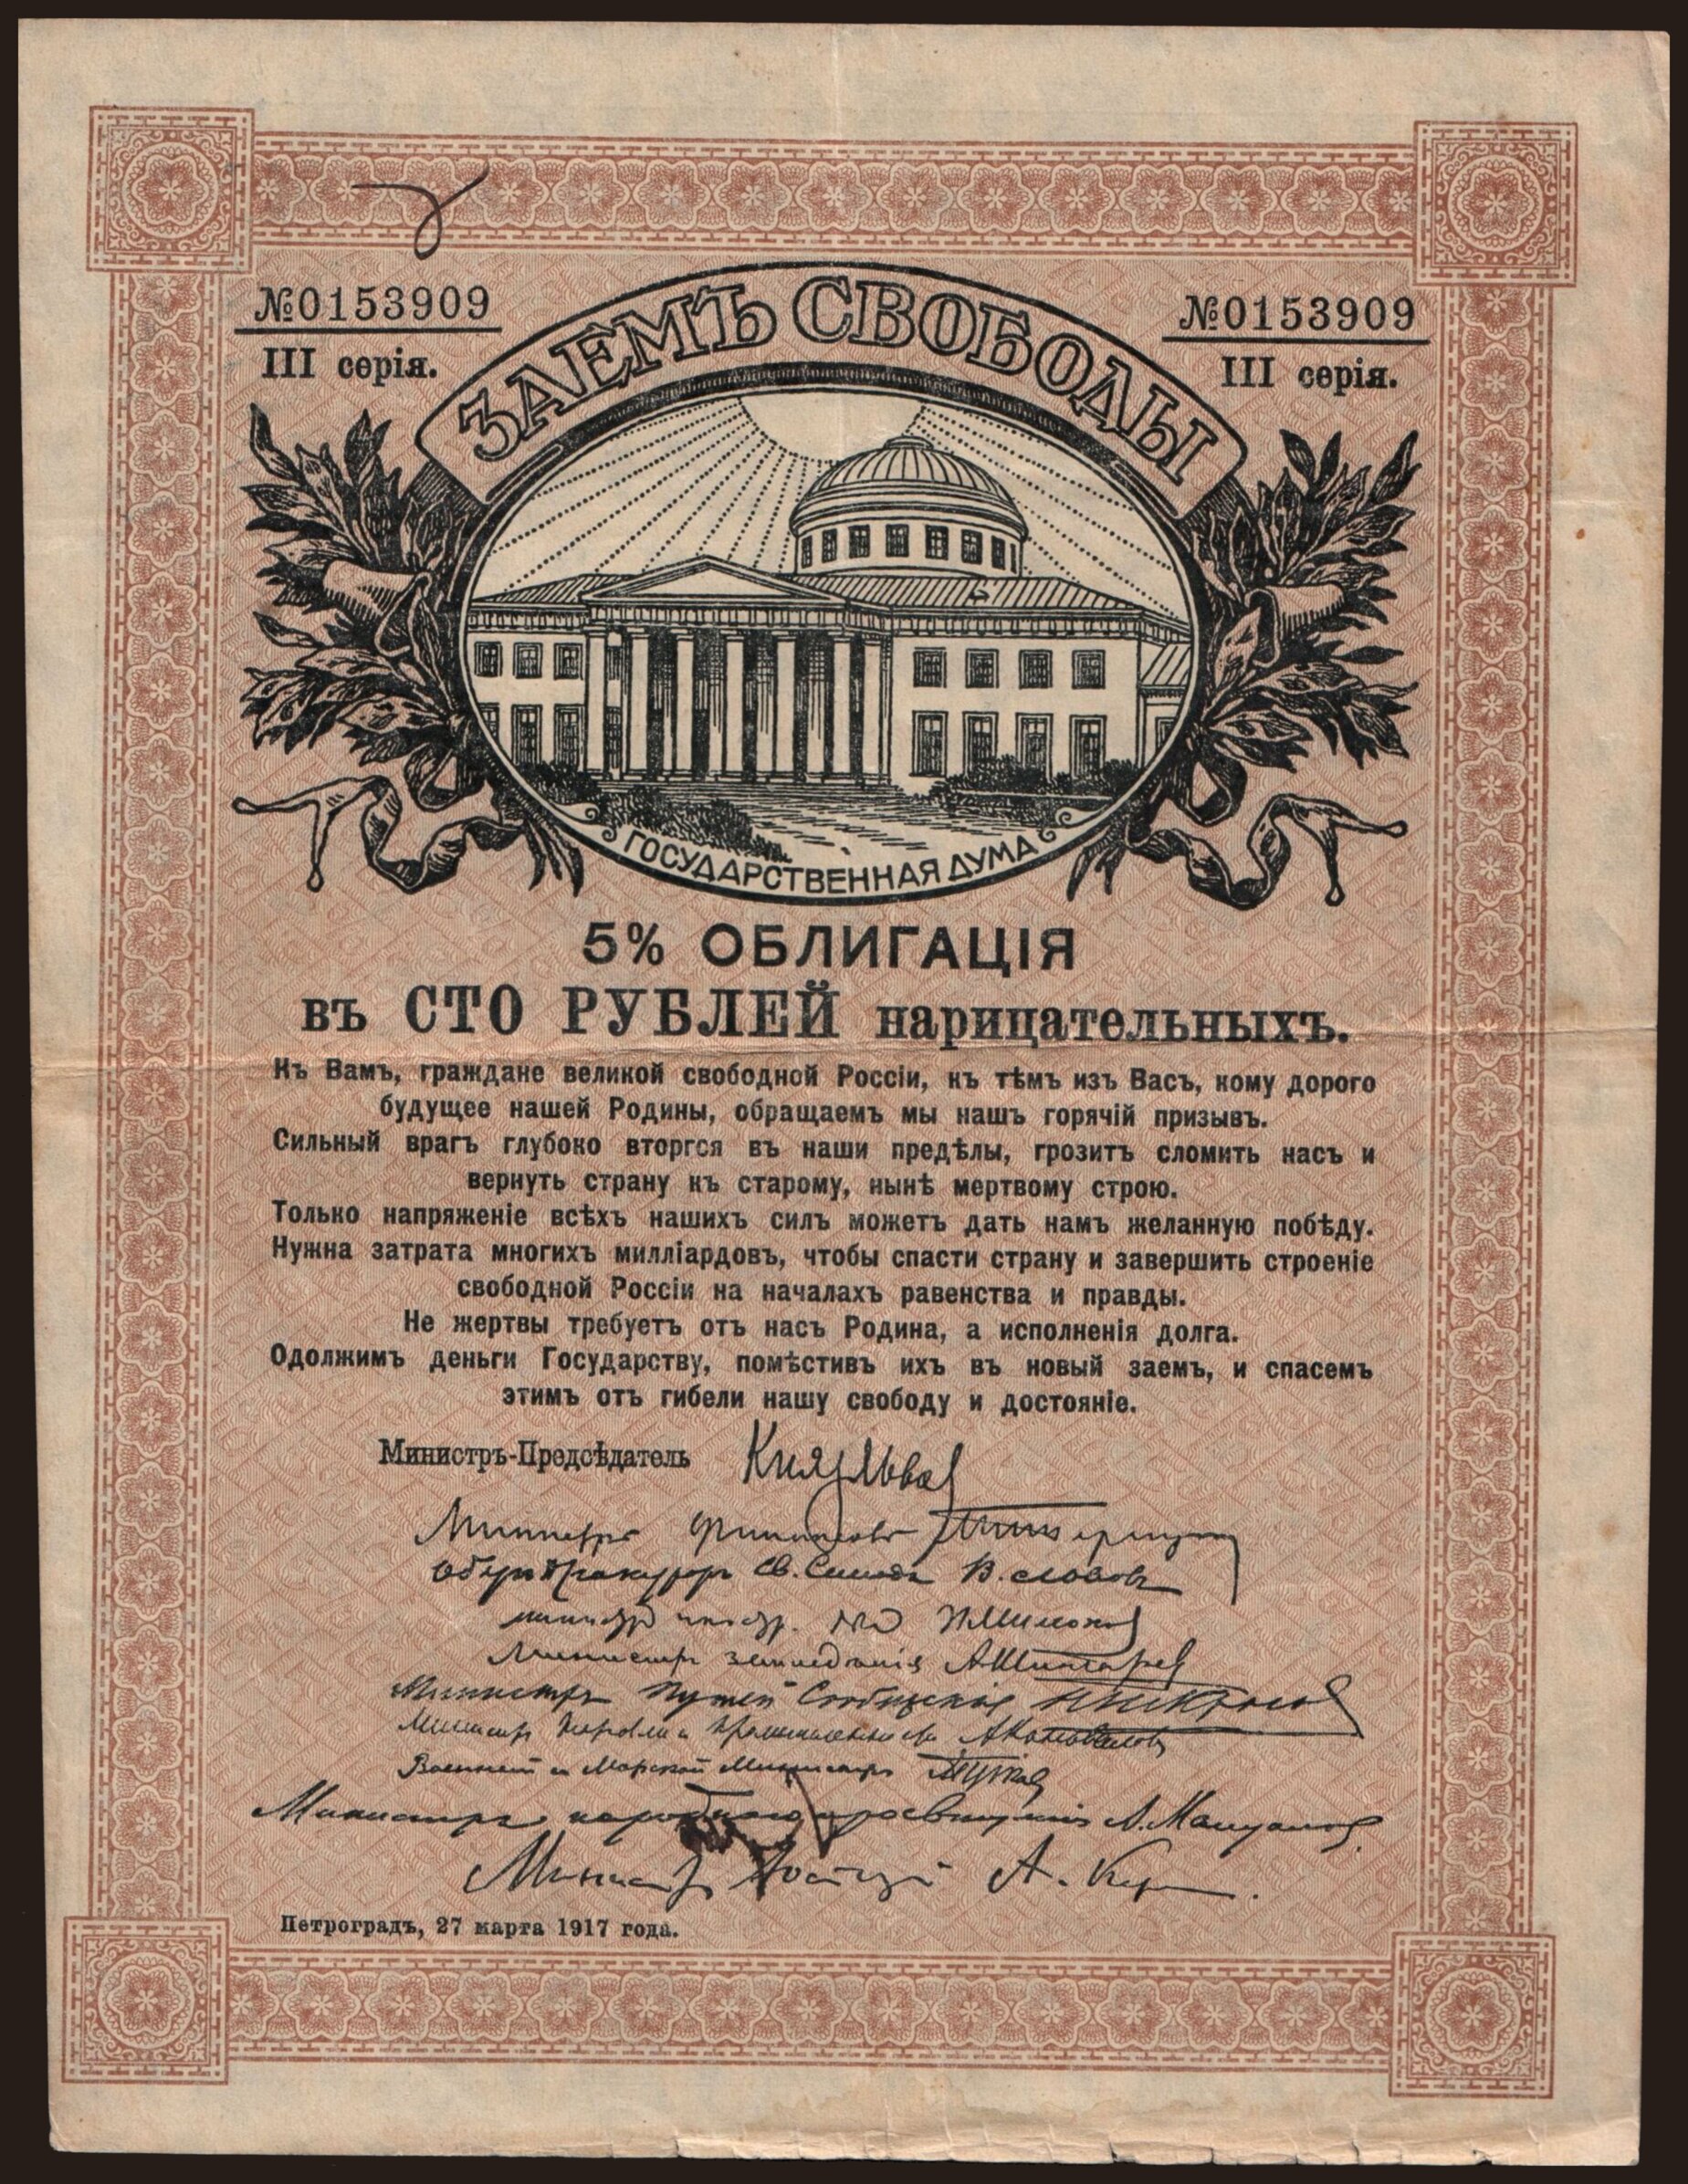 №0153909
№0153909
III серія.
III серія.
ЗАЕМЪ СВОБОДЫ
ГОСУДАРСТВЕННАЯ ДУМА
5% ОБЛИГАЦІЯ
въ СТО РУБЛЕЙ нарицательныхъ.
Къ Вамъ, граждане великой свободной Россіи, къ тѣмъ изъ Васъ, кому дорого
будущее нашей Родины, обращаемъ мы нашъ горячій призывъ.
Сильный врагъ глубоко вторгся въ наши предѣлы, грозитъ сломить насъ и
вернуть страну къ старому, нынѣ мертвому строю.
Только напряженіе всѣхъ нашихъ силъ можетъ дать намъ желанную побѣду.
Нужна затрата многихъ милліардовъ, чтобы спасти страну и завершить строеніе
свободной Россіи на началахъ равенства и правды.
Не жертвы требуетъ отъ насъ Родина, а исполненія долга.
Одолжимъ деньги Государству, помѣстивъ ихъ въ новый заемъ, и спасемъ
этимъ отъ гибели нашу свободу и достояніе.
Министръ-Предсѣдатель Князь Львов
Министръ Финансовъ
Оберъ Прокуроръ Св. Синода В. Львовъ
Министръ
Министръ земледѣлія А. Шингарев
Министръ Путей Сообщенія Н. Некрасов
Министръ Торговли и Промышленности А Коноваловъ
Военный и Морской Министръ А Гучков
Министръ народнаго просвѣщенія А. Мануилов
Министр Юстиціи А. Кер
Петроградъ, 27 марта 1917 года.